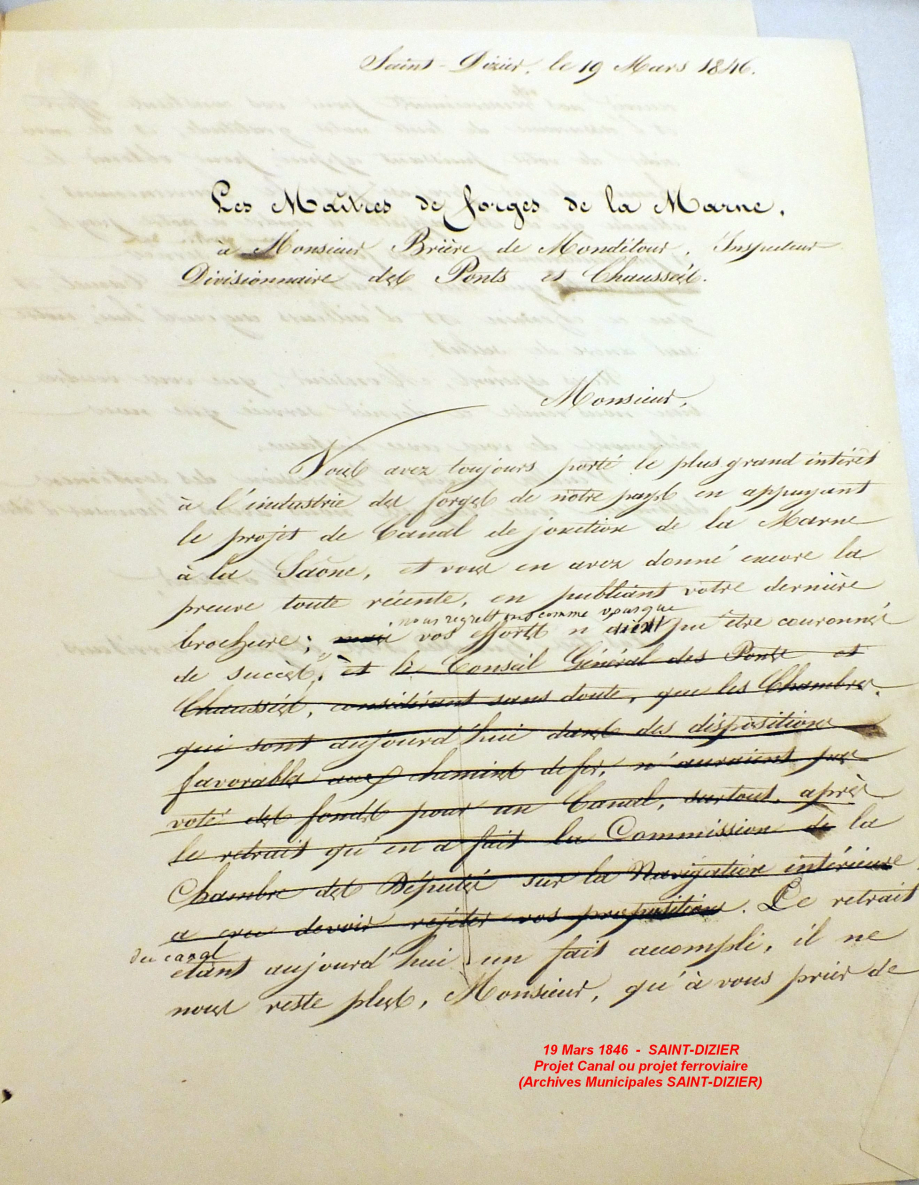 Saint-Dizier, le 19 Mars 1846.
Les Maîtres de forges de la Marne,
à Monsieur Brière de Mondétour, Inspecteur
Divisionnaire des Ponts et Chaussées.
Monsieur,
Vous avez toujours porté le plus grand intérêt
à l'industrie des forges de notre pays en appuyant
le projet de Canal de jonction de la Marne
à la Saône, et vous en avez donné encore la
preuve toute récente, en publiant votre dernière
nous regrettons comme vous que
brochure; vos efforts n'aient pu être couronnés
de succès, et le Conseil Général des Ponts et
Chaussées, considérant sans doute, que les Chambres,
qui sont aujourd'hui dans des dispositions
favorables aux chemins de fer, n'auraient pas
voté des fonds pour un Canal, surtout, après
le retrait qu'en a fait la Commission de la
Chambre des Députés sur la Navigation intérieure
a cru devoir rejeter vos propositions. Le retrait
du canal
étant aujourd'hui un fait accompli, il ne
nous reste plus, Monsieur, qu'à vous prier de
19 Mars 1846 - SAINT-DIZIER
Projet Canal ou projet ferroviaire
(Archives Municipales SAINT-DIZIER)